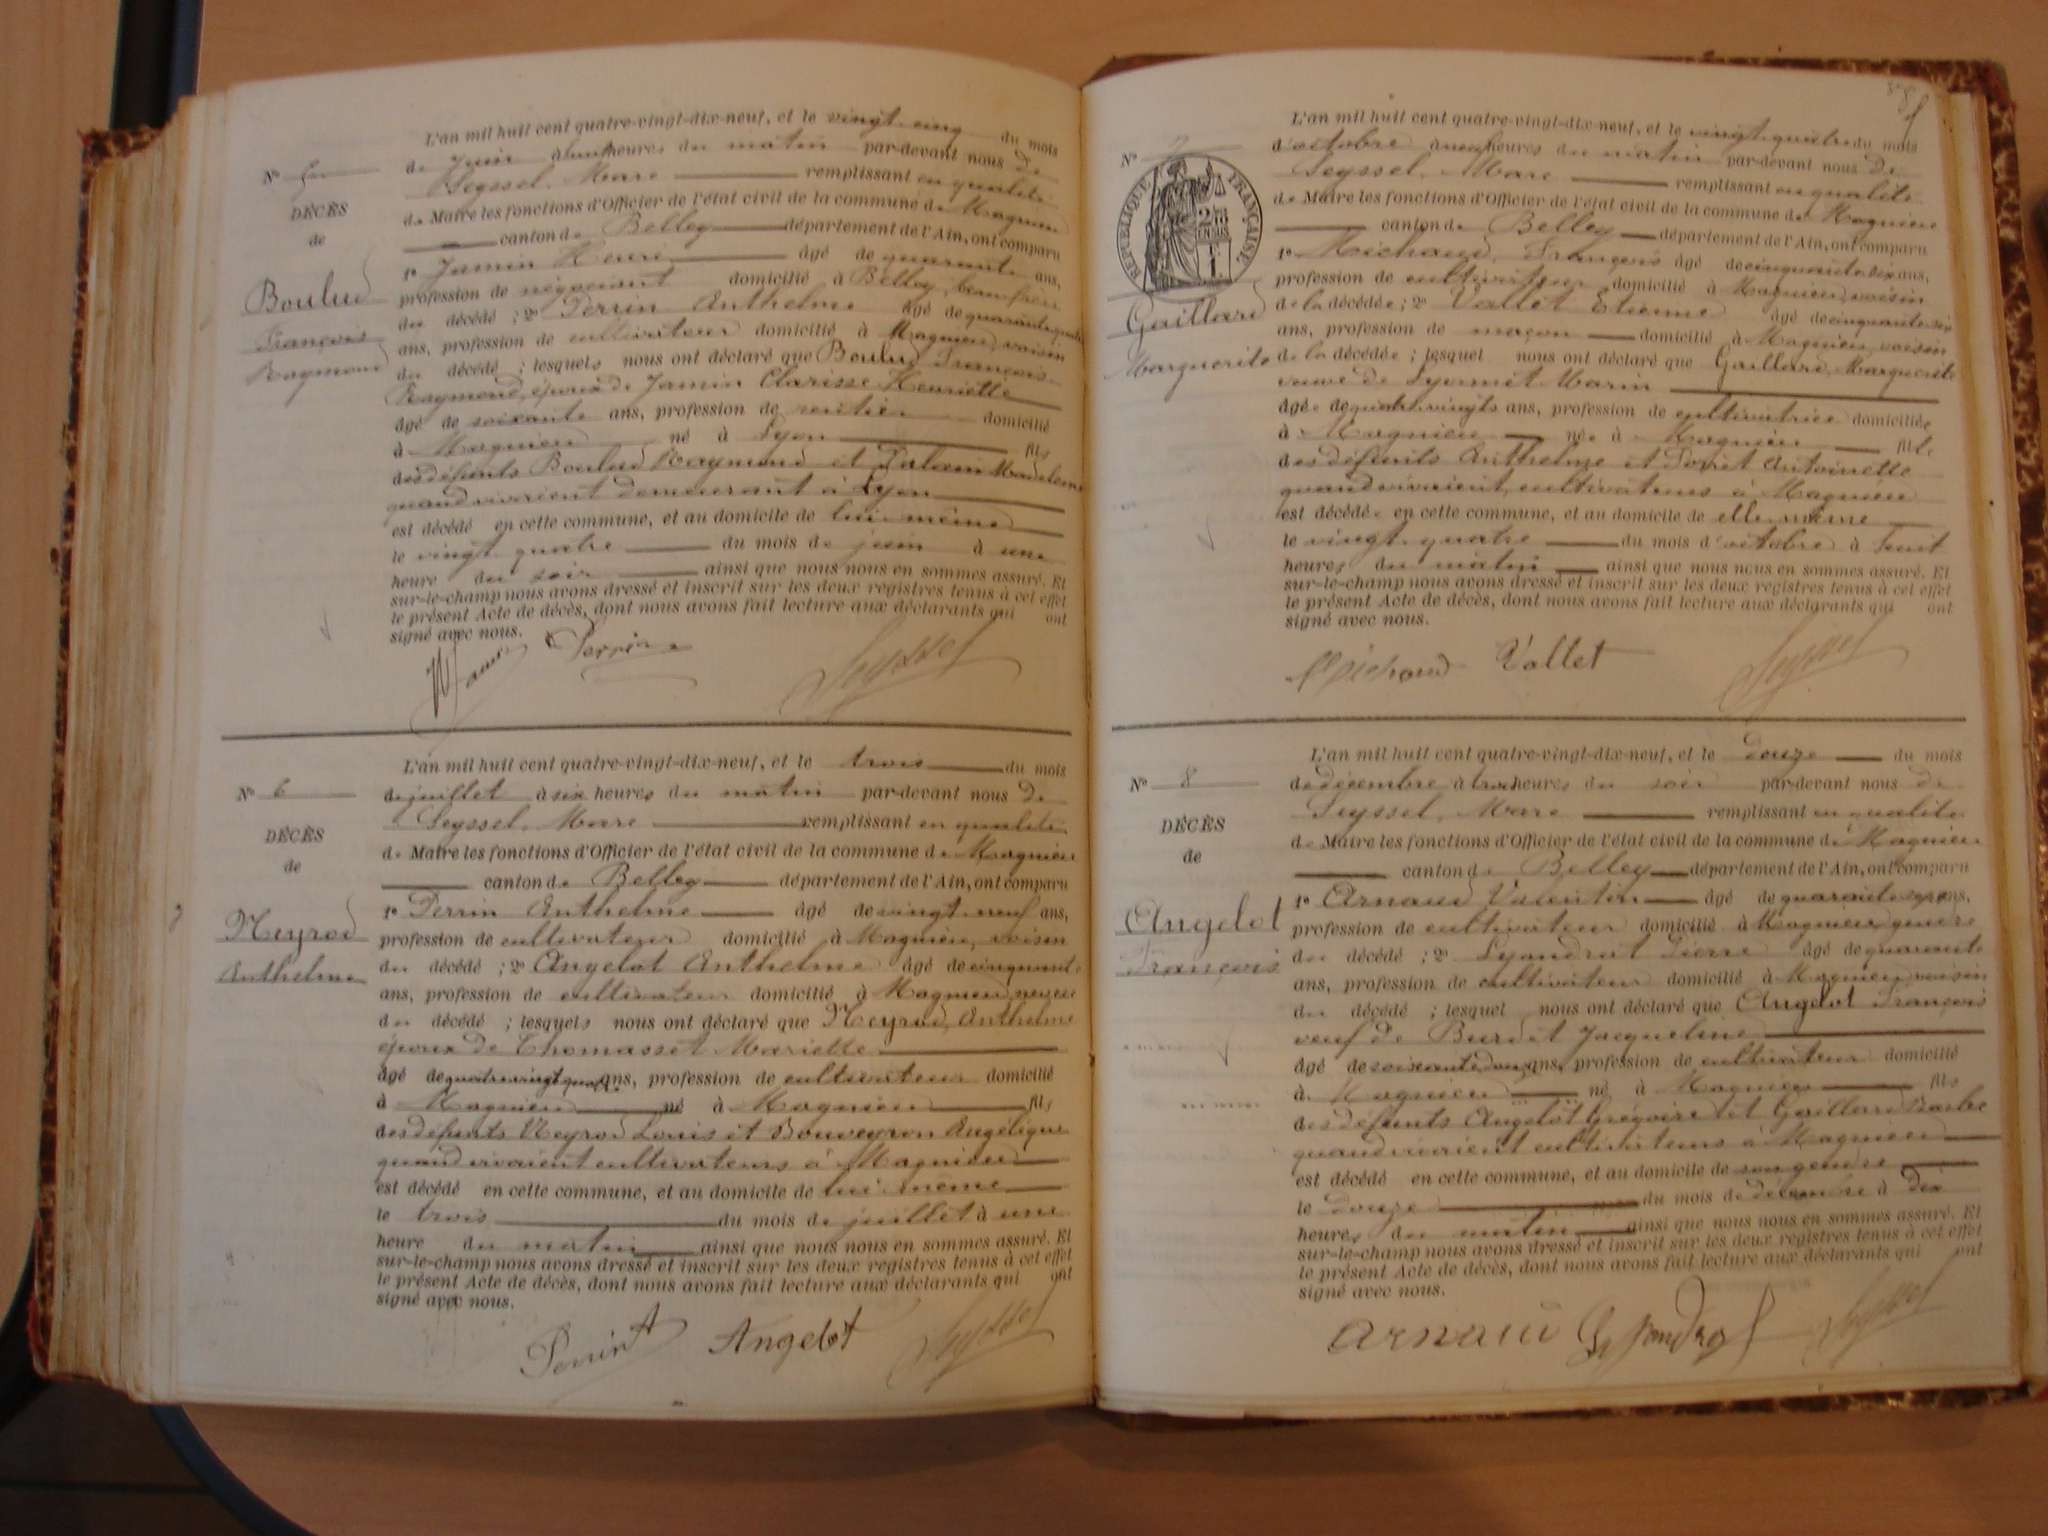 L'an mil huit cent quatre-vingt-dix-neuf, et le vingt cinq du mois
de Juin à huit heures du matin par-devant nous de
Seyssel, Marc remplissant en qualité
de Maire les fonctions d'Officier de l'état civil de la commune de Magnieu
canton de Belley département de l'Ain, ont comparu
1º Jamin Henri âgé de quarante ans,
profession de négociant domicilié à Belley, beau frère
du décédé ; 2º Perrin Anthelme âgé de quarante
ans, profession de cultivateur domicilié à Magnieu, voisin
du décédé ; lesquels nous ont déclaré que Boulud François
Raymond, époux de Jamin Clarisse Henriette
âgé de soixante ans, profession de rentier domicilié
à Magnieu né à Lyon fils
des défunts Boulud Raymond et Madeleine
quand vivaient demeurant à Lyon
est décédé en cette commune, et au domicile de lui-même
le vingt quatre du mois de juin à une
heure du soir ainsi que nous nous en sommes assuré. Et
sur-le-champ nous avons dressé et inscrit sur les deux registres tenus à cet effet
le présent Acte de décès, dont nous avons fait lecture aux déclarants qui ont
signé avec nous.
Nº 5
DÉCÈS
de
Boulud
François
Raymond
Perrin Seyssel
L'an mil huit cent quatre-vingt-dix-neuf, et le trois du mois
de juillet à six heures du matin par-devant nous de
Seyssel, Marc remplissant en qualité
de Maire les fonctions d'Officier de l'état civil de la commune de Magnieu
canton de Belley département de l'Ain, ont comparu
1º Perrin Anthelme âgé de vingt neuf ans,
profession de cultivateur domicilié à Magnieu, voisin
du décédé ; 2º Angelot Anthelme âgé de cinquante
ans, profession de cultivateur domicilié à Magnieu, neveu
du décédé ; lesquels nous ont déclaré que Neyrod, Anthelme
époux de Thomasset Mariette
âgé de quatre vingt quatre ans, profession de cultivateur domicilié
à Magnieu né à Magnieu fils
des défunts Neyrod Louis et Bouveyron Angélique
quand vivaient cultivateurs à Magnieu
est décédé en cette commune, et au domicile de lui-même
le trois du mois de juillet à une
heure du matin ainsi que nous nous en sommes assuré. Et
sur-le-champ nous avons dressé et inscrit sur les deux registres tenus à cet effet
le présent Acte de décès, dont nous avons fait lecture aux déclarants qui ont
signé avec nous.
Nº 6
DÉCÈS
de
Neyrod
Anthelme
Perrin A Angelot Seyssel
L'an mil huit cent quatre-vingt-dix-neuf, et le vingt quatre du mois
d'octobre à neuf heures du matin par-devant nous de
Seyssel, Marc remplissant en qualité
de Maire les fonctions d'Officier de l'état civil de la commune de Magnieu
canton de Belley département de l'Ain, ont comparu
1º Michaud, François âgé de cinquante six ans,
profession de cultivateur domicilié à Magnieu, voisin
de la décédée ; 2º Vallet Etienne âgé de cinquante six
ans, profession de maçon domicilié à Magnieu, voisin
de la décédée ; lesquel nous ont déclaré que Gaillard, Marguerite
veuve de Marin
âgée de quatre vingts ans, profession de cultivatrice domiciliée
à Magnieu née à Magnieu fille
des défunts Anthelme et Antoinette
quand vivaient, cultivateurs à Magnieu
est décédée en cette commune, et au domicile de elle même
le vingt quatre du mois d'octobre à huit
heures du matin ainsi que nous nous en sommes assuré. Et
sur-le-champ nous avons dressé et inscrit sur les deux registres tenus à cet effet
le présent Acte de décès, dont nous avons fait lecture aux déclarants qui ont
signé avec nous.
Nº 7
RÉPUBLIQUE FRANÇAISE
Gaillard
Marguerite
Michaud Vallet Seyssel
L'an mil huit cent quatre-vingt-dix-neuf, et le douze du mois
de décembre à trois heures du soir par-devant nous de
Seyssel, Marc remplissant en qualité
de Maire les fonctions d'Officier de l'état civil de la commune de Magnieu
canton de Belley département de l'Ain, ont comparu
1º Arnaud Valentin âgé de quarante sept ans,
profession de cultivateur domicilié à Magnieu, gendre
du décédé ; 2º Lyandrat Pierre âgé de quarante
ans, profession de cultivateur domicilié à Magnieu, voisin
du décédé ; lesquel nous ont déclaré que Angelot François
veuf de Burdet Jacqueline
âgé de soixante douze ans, profession de cultivateur domicilié
à Magnieu né à Magnieu fils
des défunts Angelot Grégoire et Gaillard Barbe
quand vivaient cultivateurs à Magnieu
est décédé en cette commune, et au domicile de son gendre
le douze du mois de décembre à dix
heures du matin ainsi que nous nous en sommes assuré. Et
sur-le-champ nous avons dressé et inscrit sur les deux registres tenus à cet effet
le présent Acte de décès, dont nous avons fait lecture aux déclarants qui ont
signé avec nous.
Nº 8
DÉCÈS
de
Angelot
François
Arnaud Lyandrat Seyssel